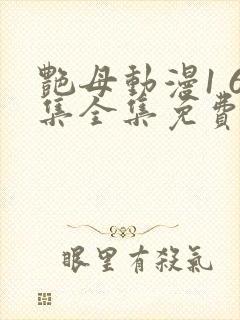 艷母動漫16
集全集免費
眼里有殺氣